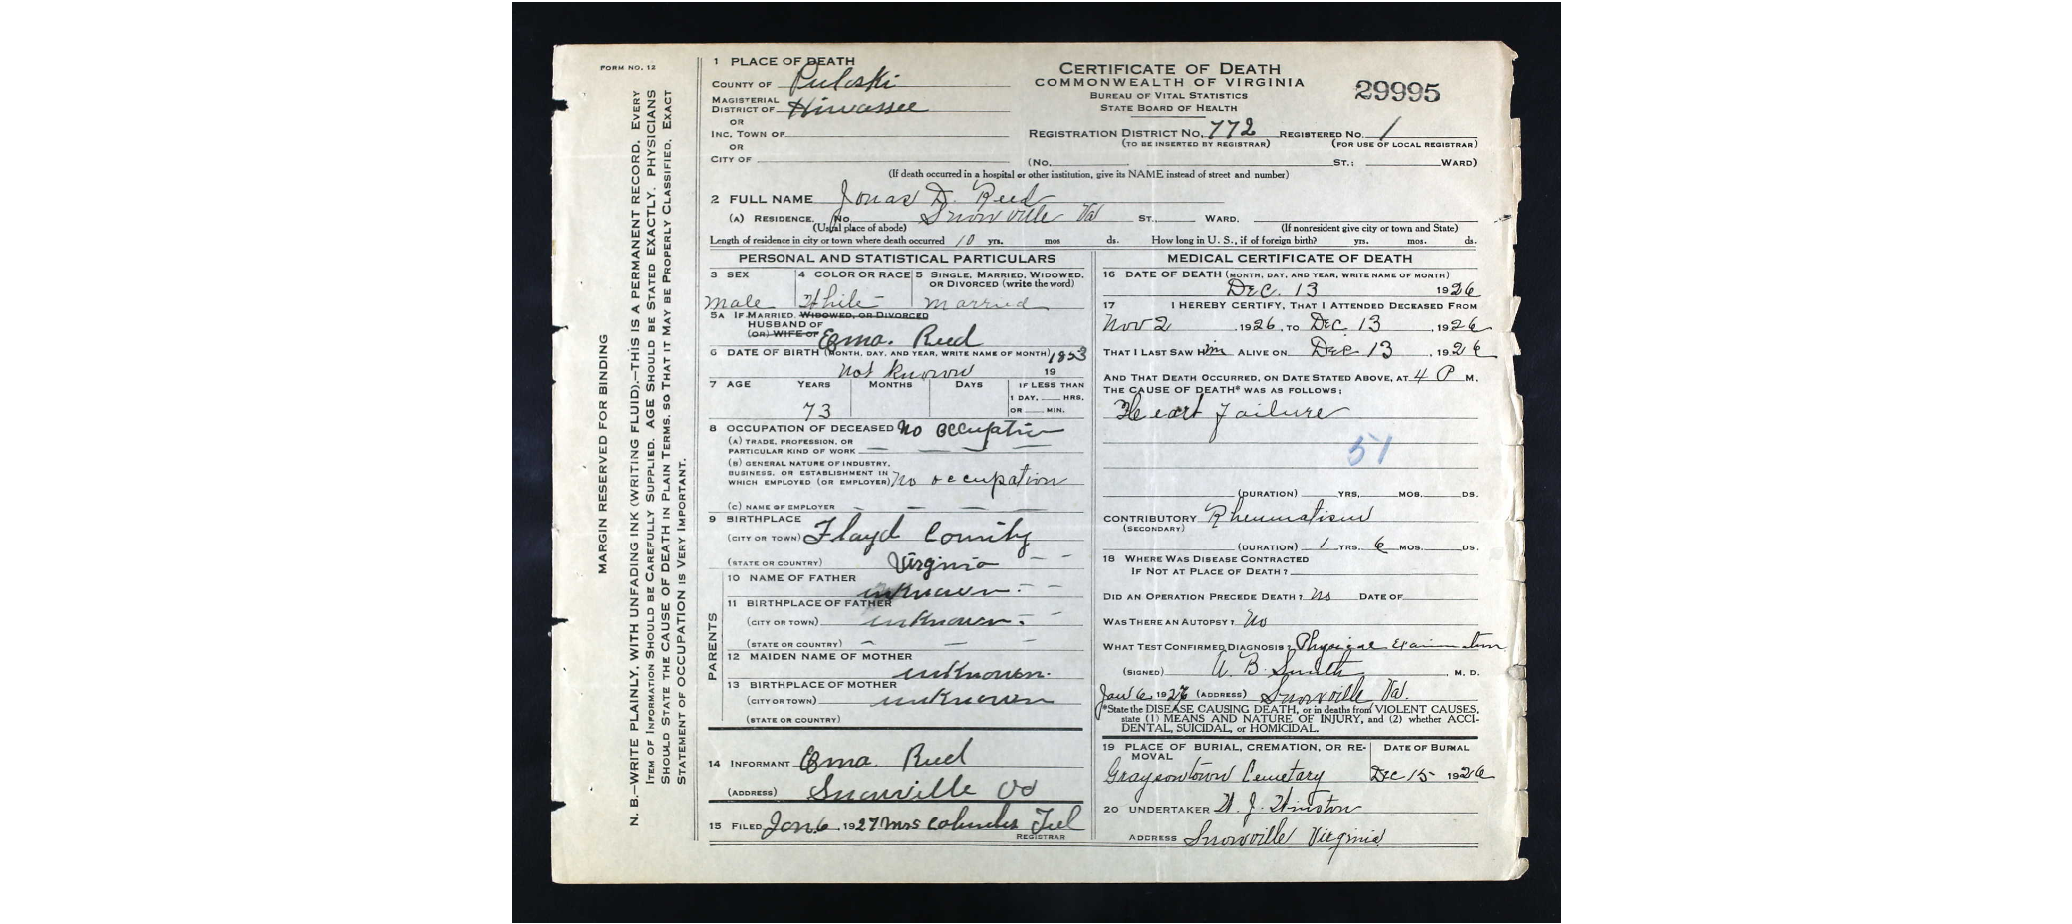 FORM NO. 12
MARGIN RESERVED FOR BINDING
N. B.—WRITE PLAINLY, WITH UNFADING INK (WRITING FLUID).—THIS IS A PERMANENT RECORD. EVERY
ITEM OF INFORMATION SHOULD BE CAREFULLY SUPPLIED. AGE SHOULD BE STATED EXACTLY. PHYSICIANS
SHOULD STATE THE CAUSE OF DEATH IN PLAIN TERMS, SO THAT IT MAY BE PROPERLY CLASSIFIED. EXACT
STATEMENT OF OCCUPATION IS VERY IMPORTANT.
1 PLACE OF DEATH
COUNTY OF Pulaski
MAGISTERIAL
DISTRICT OF Hiwassee
OR
INC. TOWN OF
OR
CITY OF
CERTIFICATE OF DEATH
COMMONWEALTH OF VIRGINIA
BUREAU OF VITAL STATISTICS
STATE BOARD OF HEALTH
29995
REGISTRATION DISTRICT NO. 772 REGISTERED NO. 1
(TO BE INSERTED BY REGISTRAR) (FOR USE OF LOCAL REGISTRAR)
(No. ST.; WARD)
(If death occurred in a hospital or other institution, give its NAME instead of street and number)
2 FULL NAME Jonas D. Reed
(A) RESIDENCE. No. Snowville Va ST. WARD.
(Usual place of abode) (If nonresident give city or town and State)
Length of residence in city or town where death occurred 10 yrs. mos ds. How long in U. S., if of foreign birth? yrs. mos. ds.
PERSONAL AND STATISTICAL PARTICULARS
3 SEX 4 COLOR OR RACE 5 SINGLE, MARRIED, WIDOWED,
OR DIVORCED (write the word)
male White married
5A IF MARRIED, WIDOWED, OR DIVORCED
HUSBAND OF
(OR) WIFE OF Ema. Reed
6 DATE OF BIRTH (MONTH, DAY, AND YEAR, WRITE NAME OF MONTH) 1853
not known 19
7 AGE YEARS MONTHS DAYS IF LESS THAN
1 DAY, HRS.
73 OR MIN.
8 OCCUPATION OF DECEASED no occupation
(A) TRADE, PROFESSION, OR
PARTICULAR KIND OF WORK
(B) GENERAL NATURE OF INDUSTRY,
BUSINESS, OR ESTABLISHMENT IN
WHICH EMPLOYED (OR EMPLOYER) no occupation
(C) NAME OF EMPLOYER
9 BIRTHPLACE
(CITY OR TOWN) Floyd County
(STATE OR COUNTRY) Virginia
PARENTS
10 NAME OF FATHER
unknown
11 BIRTHPLACE OF FATHER
(CITY OR TOWN) unknown
(STATE OR COUNTRY)
12 MAIDEN NAME OF MOTHER
unknown.
13 BIRTHPLACE OF MOTHER
(CITY OR TOWN) unknown
(STATE OR COUNTRY)
14 INFORMANT Ema. Reed
(ADDRESS) Snowville Va
15 FILED Jan 6, 1927 Mrs Columbus Teel
REGISTRAR
MEDICAL CERTIFICATE OF DEATH
16 DATE OF DEATH (MONTH, DAY, AND YEAR, WRITE NAME OF MONTH)
Dec. 13 1926
17 I HEREBY CERTIFY, THAT I ATTENDED DECEASED FROM
Nov 2, 1926, TO Dec. 13, 1926
THAT I LAST SAW Him ALIVE ON Dec 13, 1926
AND THAT DEATH OCCURRED, ON DATE STATED ABOVE, AT 4 P M.
THE CAUSE OF DEATH* WAS AS FOLLOWS:
Heart failure
51
(DURATION) YRS. MOS. DS.
CONTRIBUTORY Rheumatism
(SECONDARY)
(DURATION) 1 YRS. 6 MOS. DS.
18 WHERE WAS DISEASE CONTRACTED
IF NOT AT PLACE OF DEATH?
DID AN OPERATION PRECEDE DEATH? No DATE OF
WAS THERE AN AUTOPSY? No
WHAT TEST CONFIRMED DIAGNOSIS? Physical Examination
(SIGNED) A. B. Smith, M. D.
Jan 6, 1927 (ADDRESS) Snowville Va.
*State the DISEASE CAUSING DEATH, or in deaths from VIOLENT CAUSES,
state (1) MEANS AND NATURE OF INJURY, and (2) whether ACCI-
DENTAL, SUICIDAL, or HOMICIDAL.
19 PLACE OF BURIAL, CREMATION, OR RE- DATE OF BURIAL
MOVAL
Graysontown Cemetary Dec 15 1926
20 UNDERTAKER H. J. Winston
ADDRESS Snowville Virginia